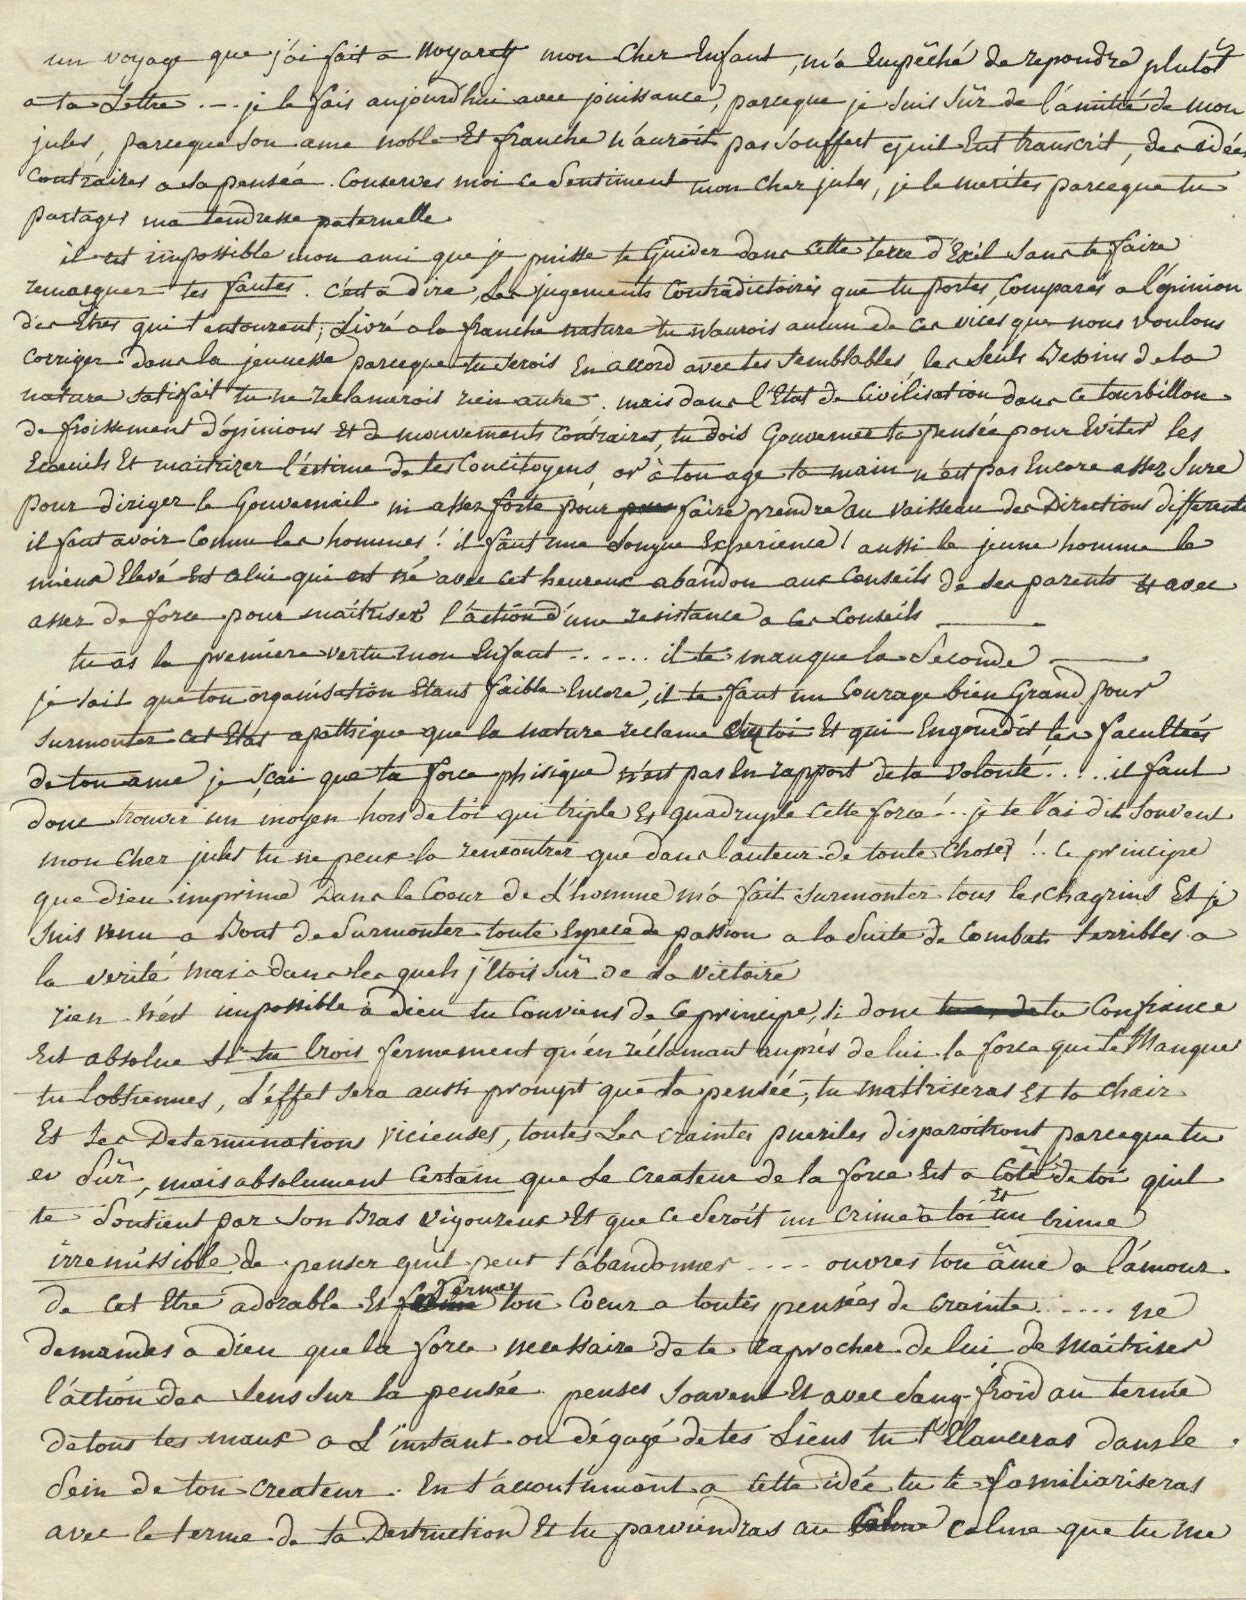 un voyage que j'ai fait a Noyarey mon Cher Enfant, m'a Empêché de repondre plutôt
a ta Lettre . -- je le fais aujourdhui avec jouissance, parceque je suis sûr de l'amitié de mon
jules, parceque son ame noble Et franche n'auroit pas souffert quil Eut transcrit, des idées
Contraires a sa pensée. Conserves moi ce Sentiment mon Cher jules, je le merites parceque tu
partages ma tendresse paternelle.
il est impossible mon ami que je puisse te Guider dans cette terre d'Exil sans te faire
remarquer tes fautes. c'est a dire, Les jugements Contradictoires que tu portes, Comparés a l'opinion
des Êtres qui t'entourent; Livré a la franche nature tu n'aurois aucun de ces vices que nous voulons
Corriger dans la jeunesse parceque tu serois En accord avec tes semblables, les seuls Besoins de la
nature satisfait tu ne reclamerois rien autre. mais dans l'Etat de Civilisation dans ce tourbillon
de froissement d'opinions Et de mouvements Contraires, tu dois Gouverner ta pensée pour Eviter les
Ecoeuils Et maitriser l'estime de tes Concitoyens, or à ton age ta main n'est pas Encore assez sure
pour diriger le Gouvernail ni assez forte pour faire prendre au vaisseau des Directions differentes
il faut avoir Connu les hommes! il faut une longue Experience! aussi le jeune homme le
mieux Elevé Est celui qui est né avec cet heureux abandon aux Conseils de ses parents Et avec
assez de force pour maîtriser l'action d'une resistance a ces Conseils
tu as la premiere vertu mon Enfant ...... il te manque la Seconde
je sait que ton organisation Etant faible Encore, il te faut un Courage bien Grand pour
surmonter cet Etat apathique que la nature reclame chez toi Et qui Engourdit les facultées
de ton ame je sçai que ta force phisique n'est pas En rapport de ta volonté ..... il faut
donc trouver un moyen hors de toi qui triple Et quadruple cette force! .. je te l'ai dit souvent
mon Cher jules tu ne peux la rencontrer que dans l'auteur de toute Chose !.. ce principe
que dieu imprime Dans le Coeur de L'homme m'a fait surmonter tous les chagrins Et je
suis venu a Bout de surmonter toute Espece de passion a la suite de Combats terribles a
la verité mais dans les quels j'Etois sûr de la victoire
rien n'est impossible à dieu tu Conviens de ce principe, si donc ta Confiance
Est absolue si tu Crois fermement qu'en réclamant auprés de lui la force qui te Manque
tu l'obtiennes, L'éffet sera aussi prompt que ta pensée, tu maîtriseras Et ta chair
Et Ses Determinations vicieuses, toutes Les craintes pueriles disparoitront parceque tu
es sûr, mais absolument certain que Le Createur de la force Est a côté de toi quil
te Soutient par son Bras vigoureux Et que ce seroit un crime a toi Et un Crime
irremissible de penser quil peut t'abandonner .... ouvres ton âme a l'amour
de cet Etre adorable Et fermes ton Coeur a toutes pensées de crainte ...... ne
demandes a dieu que la force necessaire de te raprocher de lui de Maitriser
l'action des Sens sur la pensée. penses souvent Et avec sang-froid au terme
de tous tes maux a L'instant ou dégagé de tes Liens tu t'Elanceras dans le
Sein de ton createur. En t'accoutumant a cette idée tu te familiariseras
avec le terme de ta Destruction Et tu parviendras au calme que tu me